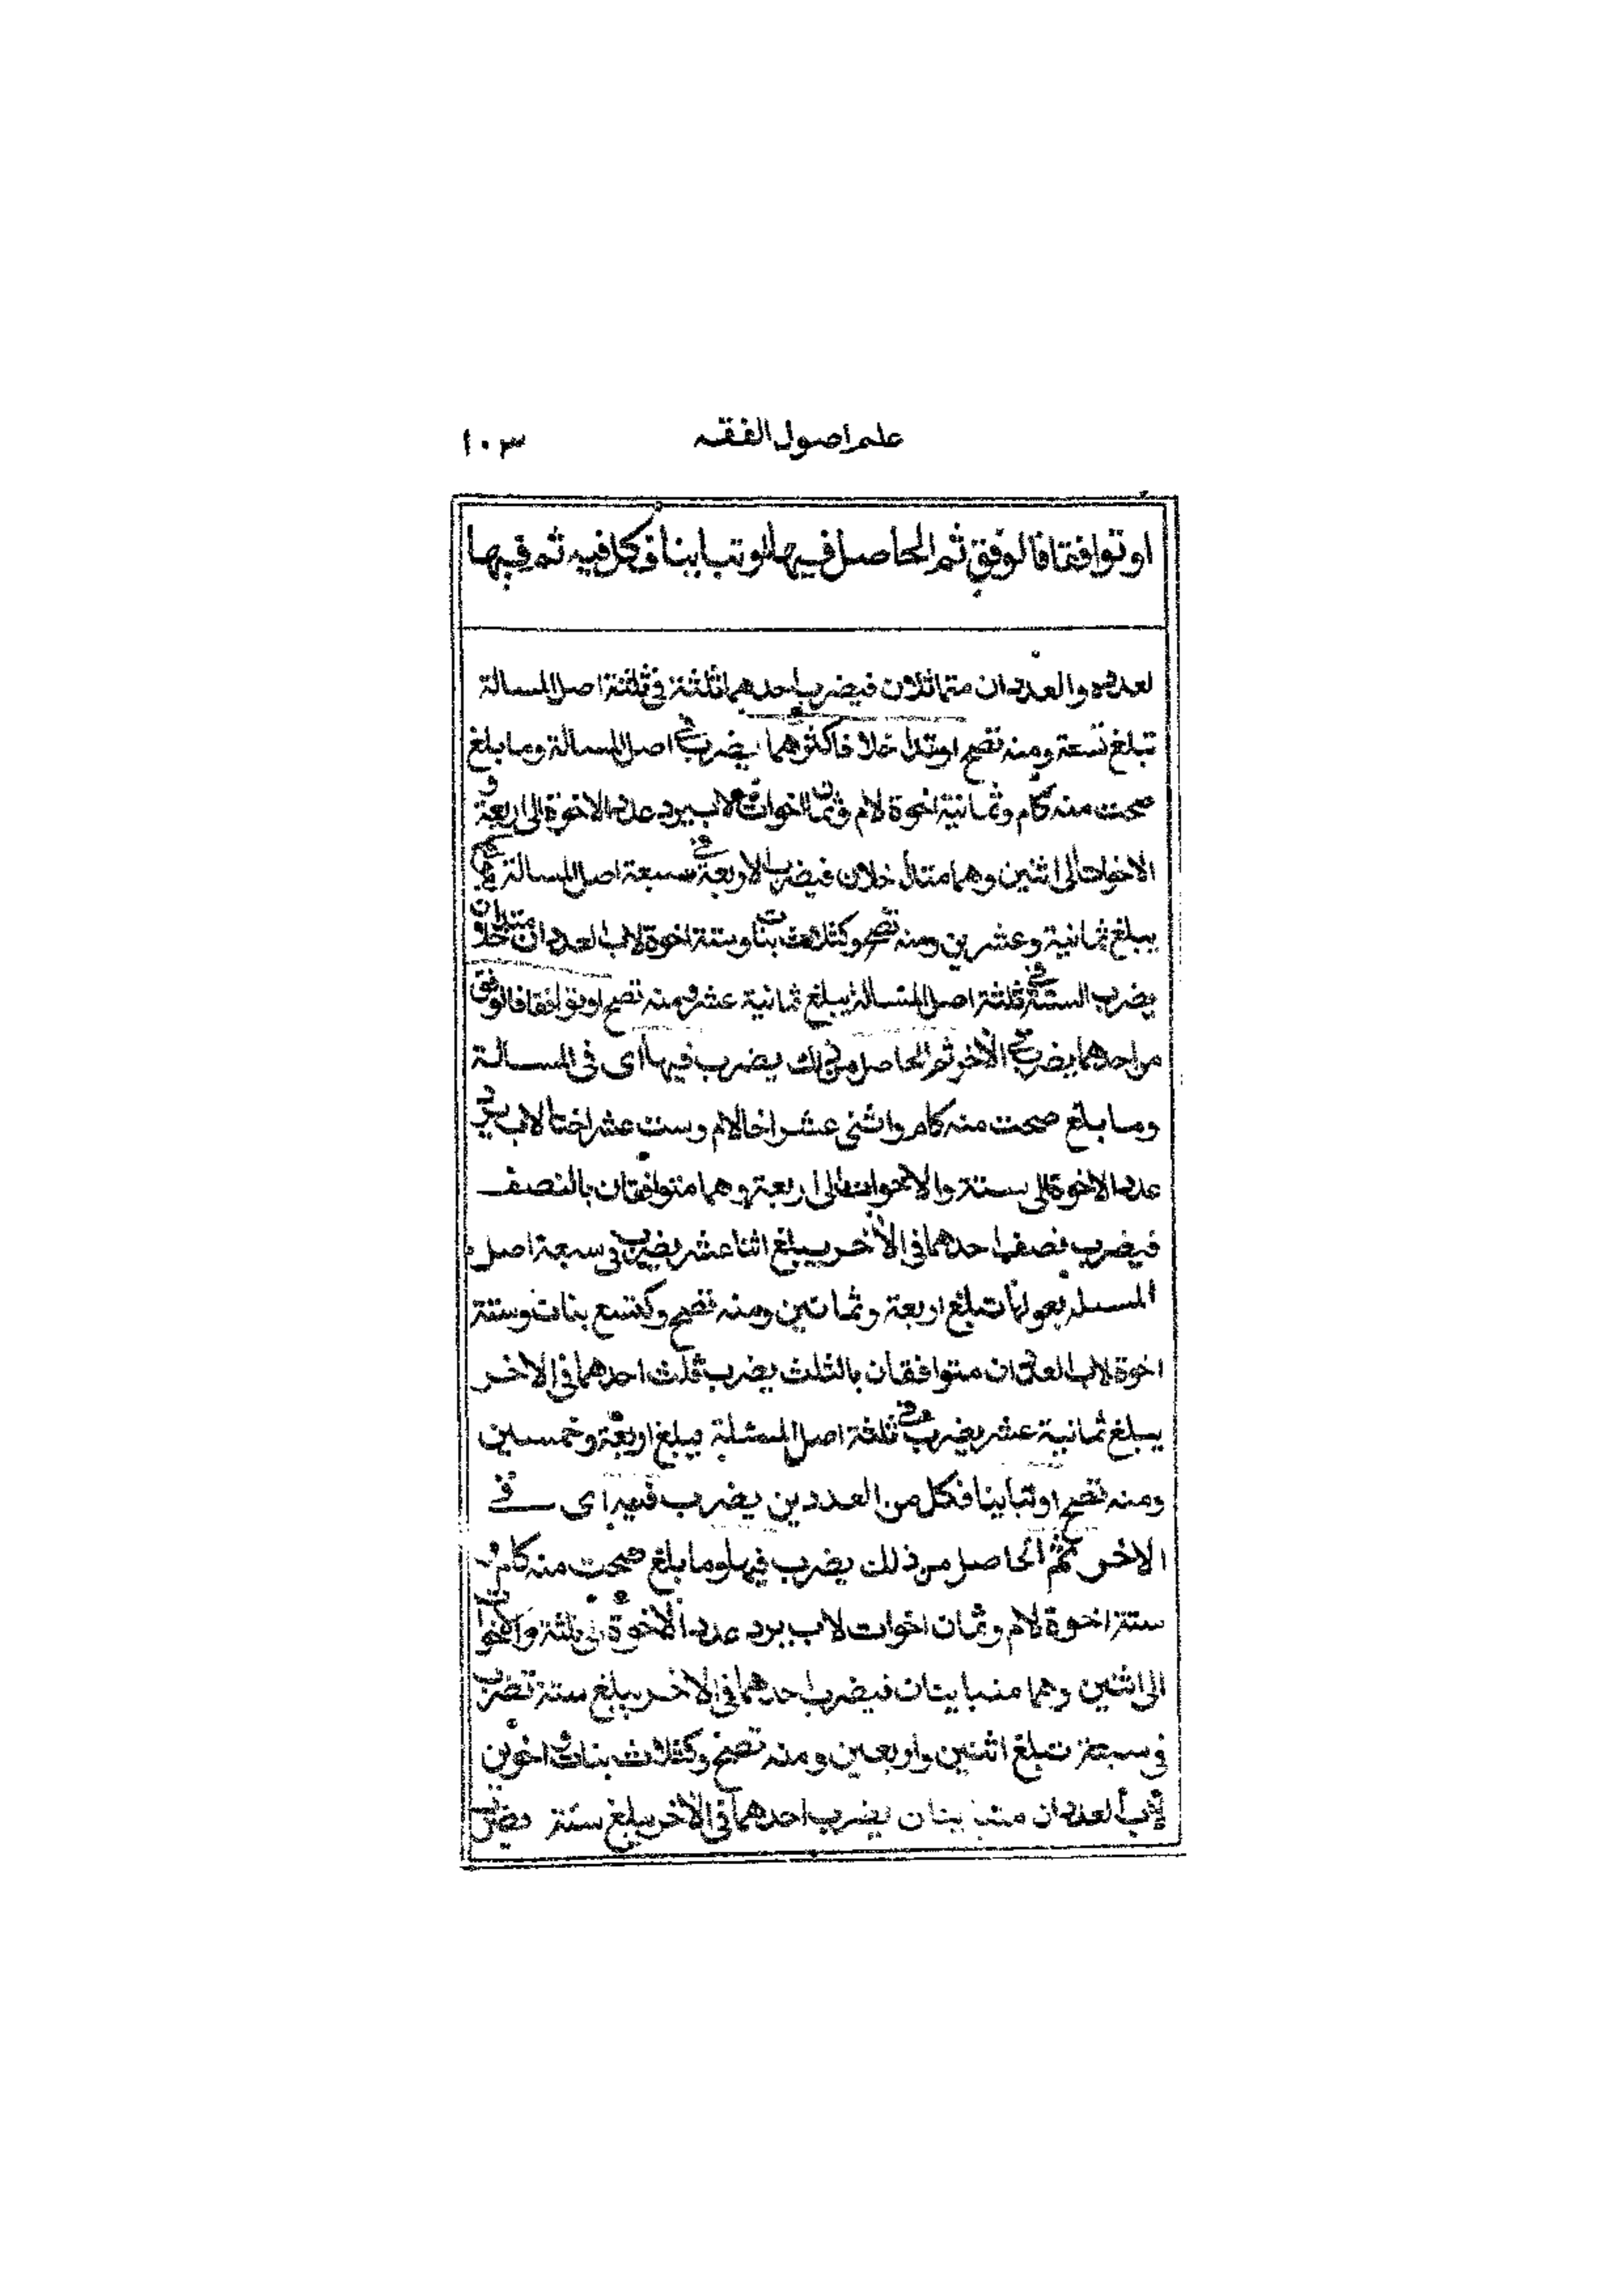 علم اصول الفقه ١٠٣
او توافقا فالوفق ثم الحاصل فيها او تباينا فكل فيه ثم فيها
لعدده والعددان متماثلان فيضرب احدهما ثلثة فى ثلثة اصل المسالة
تبلغ تسعة ومنه تصح او تداخلا فاكثرهما يضرب فى اصل المسالة وما بلغ
صحت منه كام وثمانية اخوة لام وثمان اخوات لاب يرد عدد الاخوة الى اربعة و
الاخوات الى اثنين وهما متداخلان فيضرب الاربعة فى سبعة اصل المسالة
يبلغ ثمانية وعشرين ومنه تصح وكثلاث بنات وستة اخوة لاب العددان متداخلان
يضرب الستة فى ثلثة اصل المسالة يبلغ ثمانية عشر ومنه تصح او توافقا فالوفق
من احدهما يضرب فى الأخر ثم الحاصل من ذلك يضرب فيها اى فى المسالة
وما بلغ صحت منه كام واثنى عشر اخا لام وست عشر اختا لاب يرد
عدد الاخوة الى ستة والاخوات الى اربعة وهما متوافقان بالنصف
فيضرب نصف احدهما فى الأخر يبلغ اثنا عشر يضرب فى سبعة اصل
المسئلة بعولها تبلغ اربعة وثمانين ومنه تصح وكتسع بنات وستة
اخوة لاب العددان متوافقان بالثلث يضرب ثلث احدهما فى الاخر
يبلغ ثمانية عشر يضرب فى ثلثة اصل المسئلة يبلغ اربعة وخمسين
ومنه تصح او تباينا فكل من العددين يضرب فيه اى فى
الاخر ثم الحاصل من ذلك يضرب فيها وما بلغ صحت منه كام و
ستة اخوة لام وثمان اخوات لاب يرد عدد الأخوة الى ثلثة والاخوات
الى اثنين وهما متباينان فيضرب احدهما فى الاخر يبلغ ستة تضرب
فى سبعة تبلغ اثنين واربعين ومنه تصح وكثلاث بنات و اخوين
لأب العددان متباينان يضرب احدهما فى الأخر يبلغ ستة يضرب